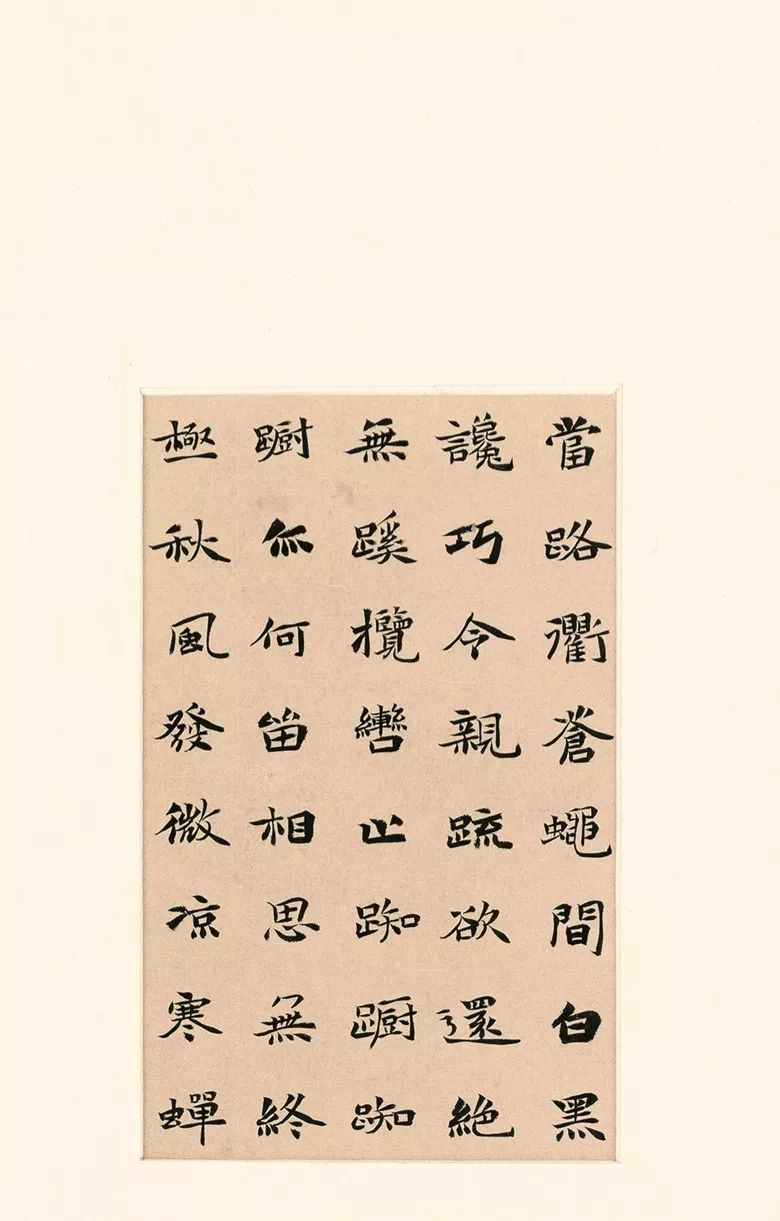 當路衢蒼蠅間白黑
讒巧令親疏欲還絶
無蹊攬轡止踟蹰踟
蹰亦何留相思無終
極秋風發微凉寒蟬